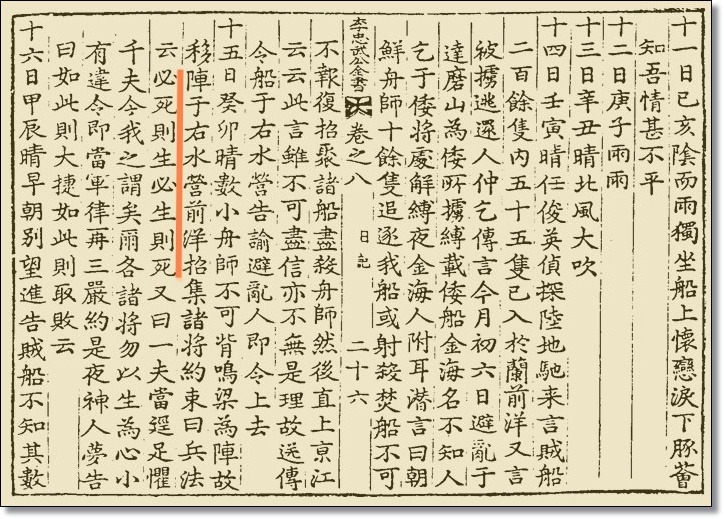 十一日己亥陰而雨獨坐船上懷戀淚下豚薈
知吾情甚不平
十二日庚子雨雨
十三日辛丑晴北風大吹
十四日壬寅晴任俊英偵探陸地馳来言賊船
二百餘隻內五十五隻已入於蘭前洋又言
被擄逃還人仲乞傳言今月初六日避亂于
達磨山為倭所擄縛載倭船金海名不知人
乞于倭將處解縛夜金海人附耳潛言曰朝
鮮舟師十餘隻追逐我船或射殺焚船不可
李忠武公全書 卷之八 日記 二十六
不報復招聚諸船盡殺舟師然後直上京江
云云此言雖不可盡信亦不無是理故送傳
令船于右水營告諭避亂人即令上去
十五日癸卯晴數小舟師不可背鳴梁為陣故
移陣于右水營前洋招集諸將約束曰兵法
云必死則生必生則死又曰一夫當逕足懼
千夫今我之謂矣爾各諸將勿以生為心小
有違令即當軍律再三嚴約是夜神人夢告
曰如此則大捷如此則取敗云
十六日甲辰晴早朝別望進告賊船不知其數